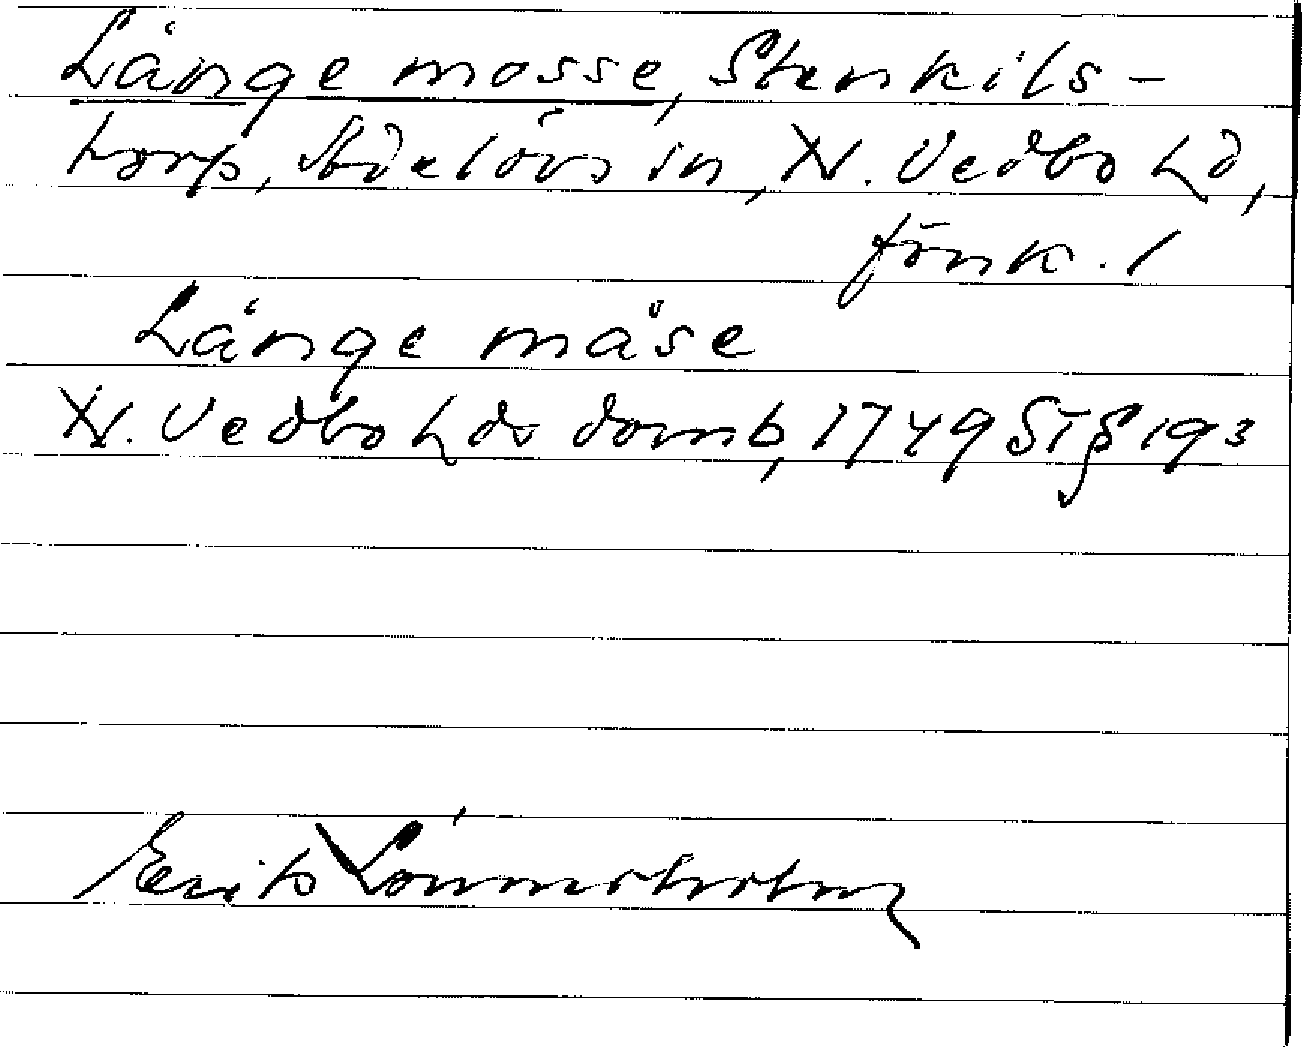 Långe mosse, Stenkils-
torp, Adelövs sn, N. Vedbo hd,
Jönk. l
Långe måse
N. Vedbo hds domb, 1749 ST § 193
Erik Lönnerholm